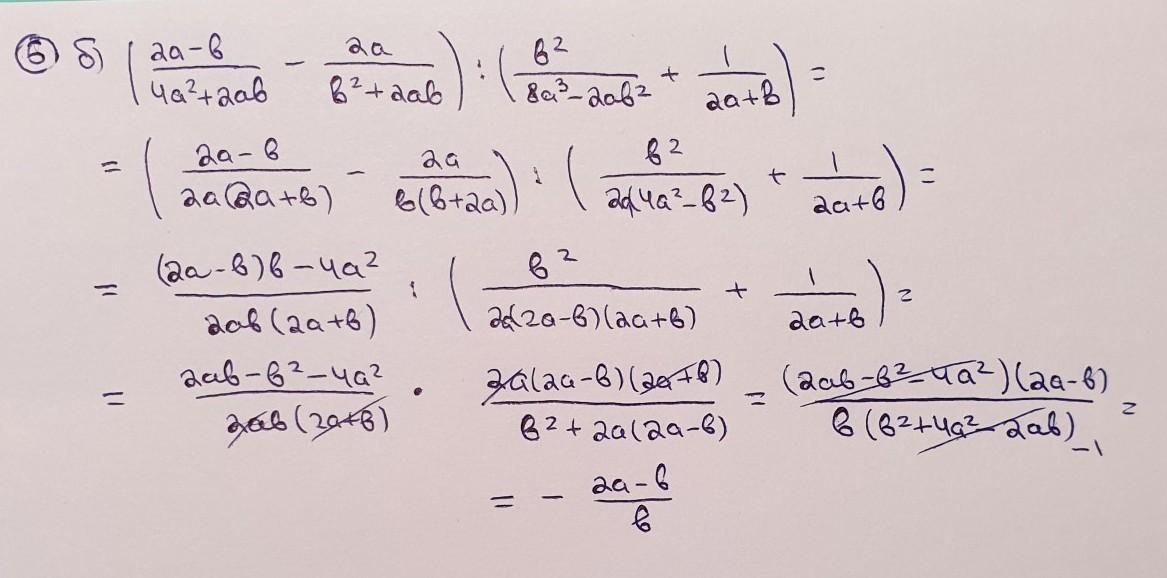 ⑥ б) ((2a-b)/(4a²+2ab) - 2a/(b²+2ab)) : (b²/(8a³-2ab²) + 1/(2a+b)) =
= ((2a-b)/(2a(2a+b)) - 2a/(b(b+2a))) : (b²/(2a(4a²-b²)) + 1/(2a+b)) =
= ((2a-b)b-4a²)/(2ab(2a+b)) : (b²/(2a(2a-b)(2a+b)) + 1/(2a+b)) =
= (2ab-b²-4a²)/(2ab(2a+b)) · (2a(2a-b)(2a+b))/(b²+2a(2a-b)) = ((2ab-b²-4a²)(2a-b))/(b(b²+4a²-2ab)) -1 =
= - (2a-b)/b